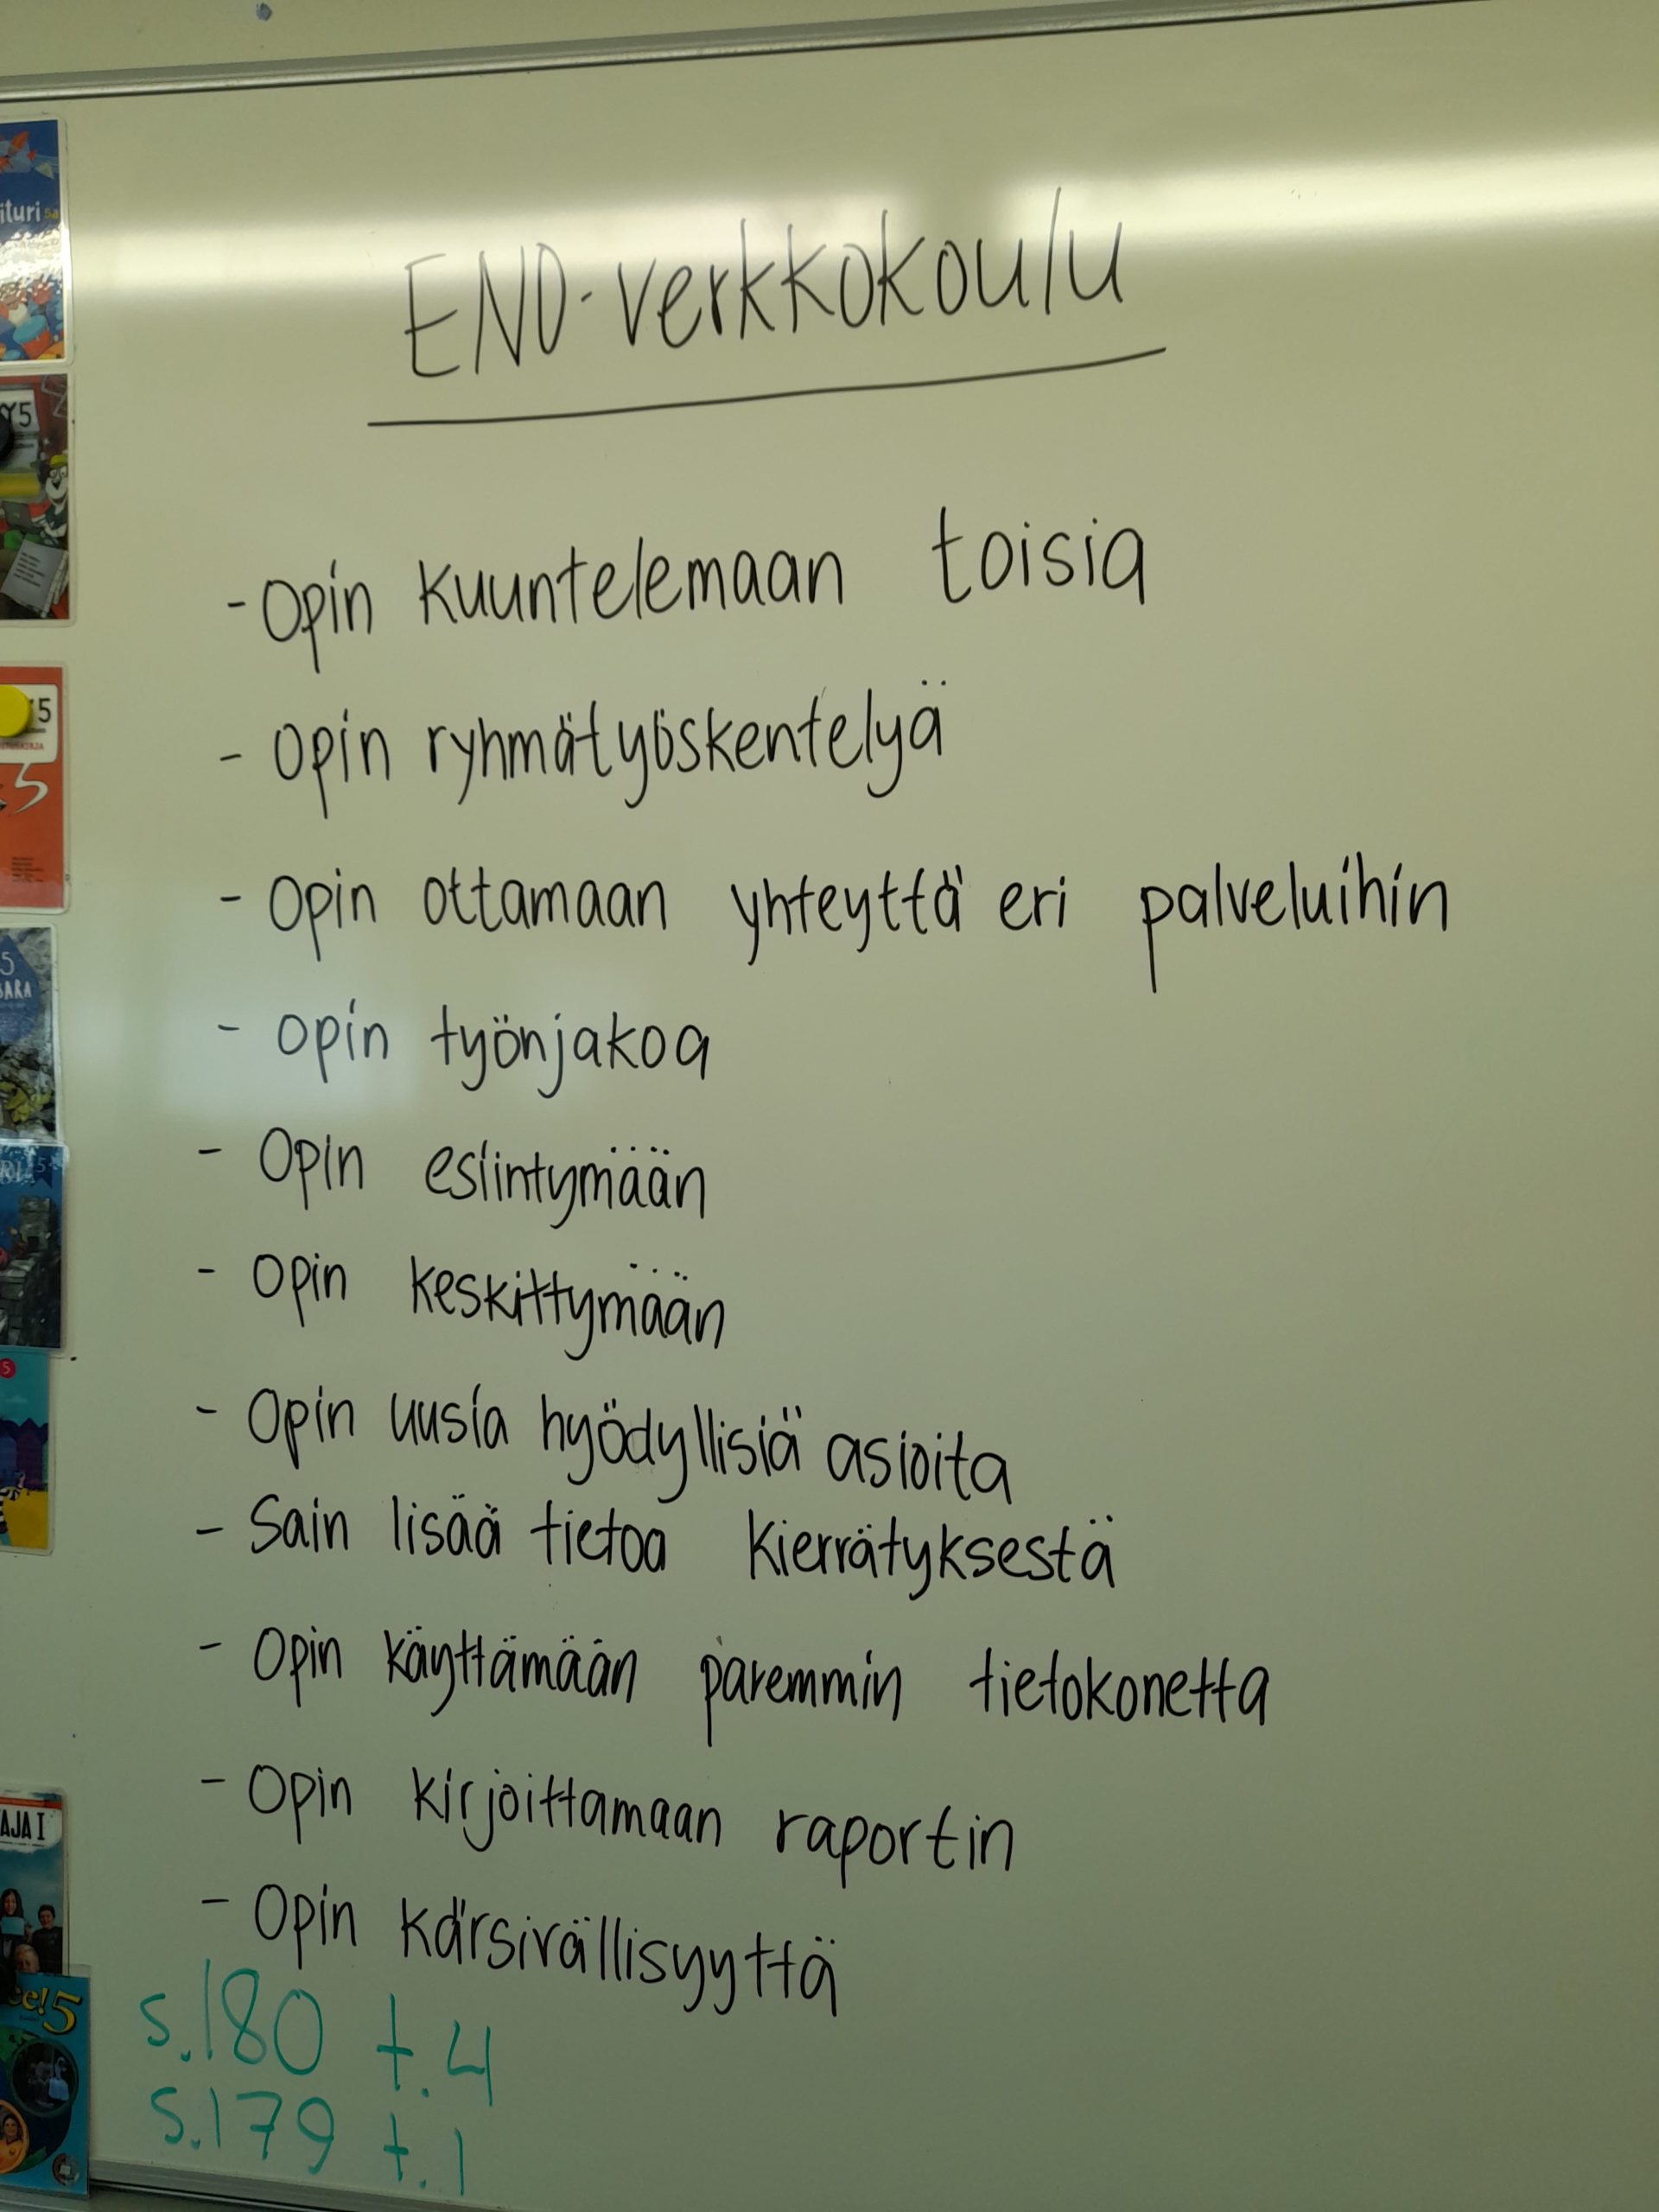 ituri 5a
Y5
5
5
5
SARA
5
5
AJA I
ee! 5
ENO-verkkokoulu
- Opin kuuntelemaan toisia
- Opin ryhmätyöskentelyä
- Opin ottamaan yhteyttä eri palveluihin
- Opin työnjakoa
- Opin esiintymään
- Opin keskittymään
- Opin uusia hyödyllisiä asioita
- Sain lisää tietoa kierrätyksestä
- Opin käyttämään paremmin tietokonetta
- Opin kirjoittamaan raportin
- Opin kärsivällisyyttä
s.180 t.4
s.179 t.1